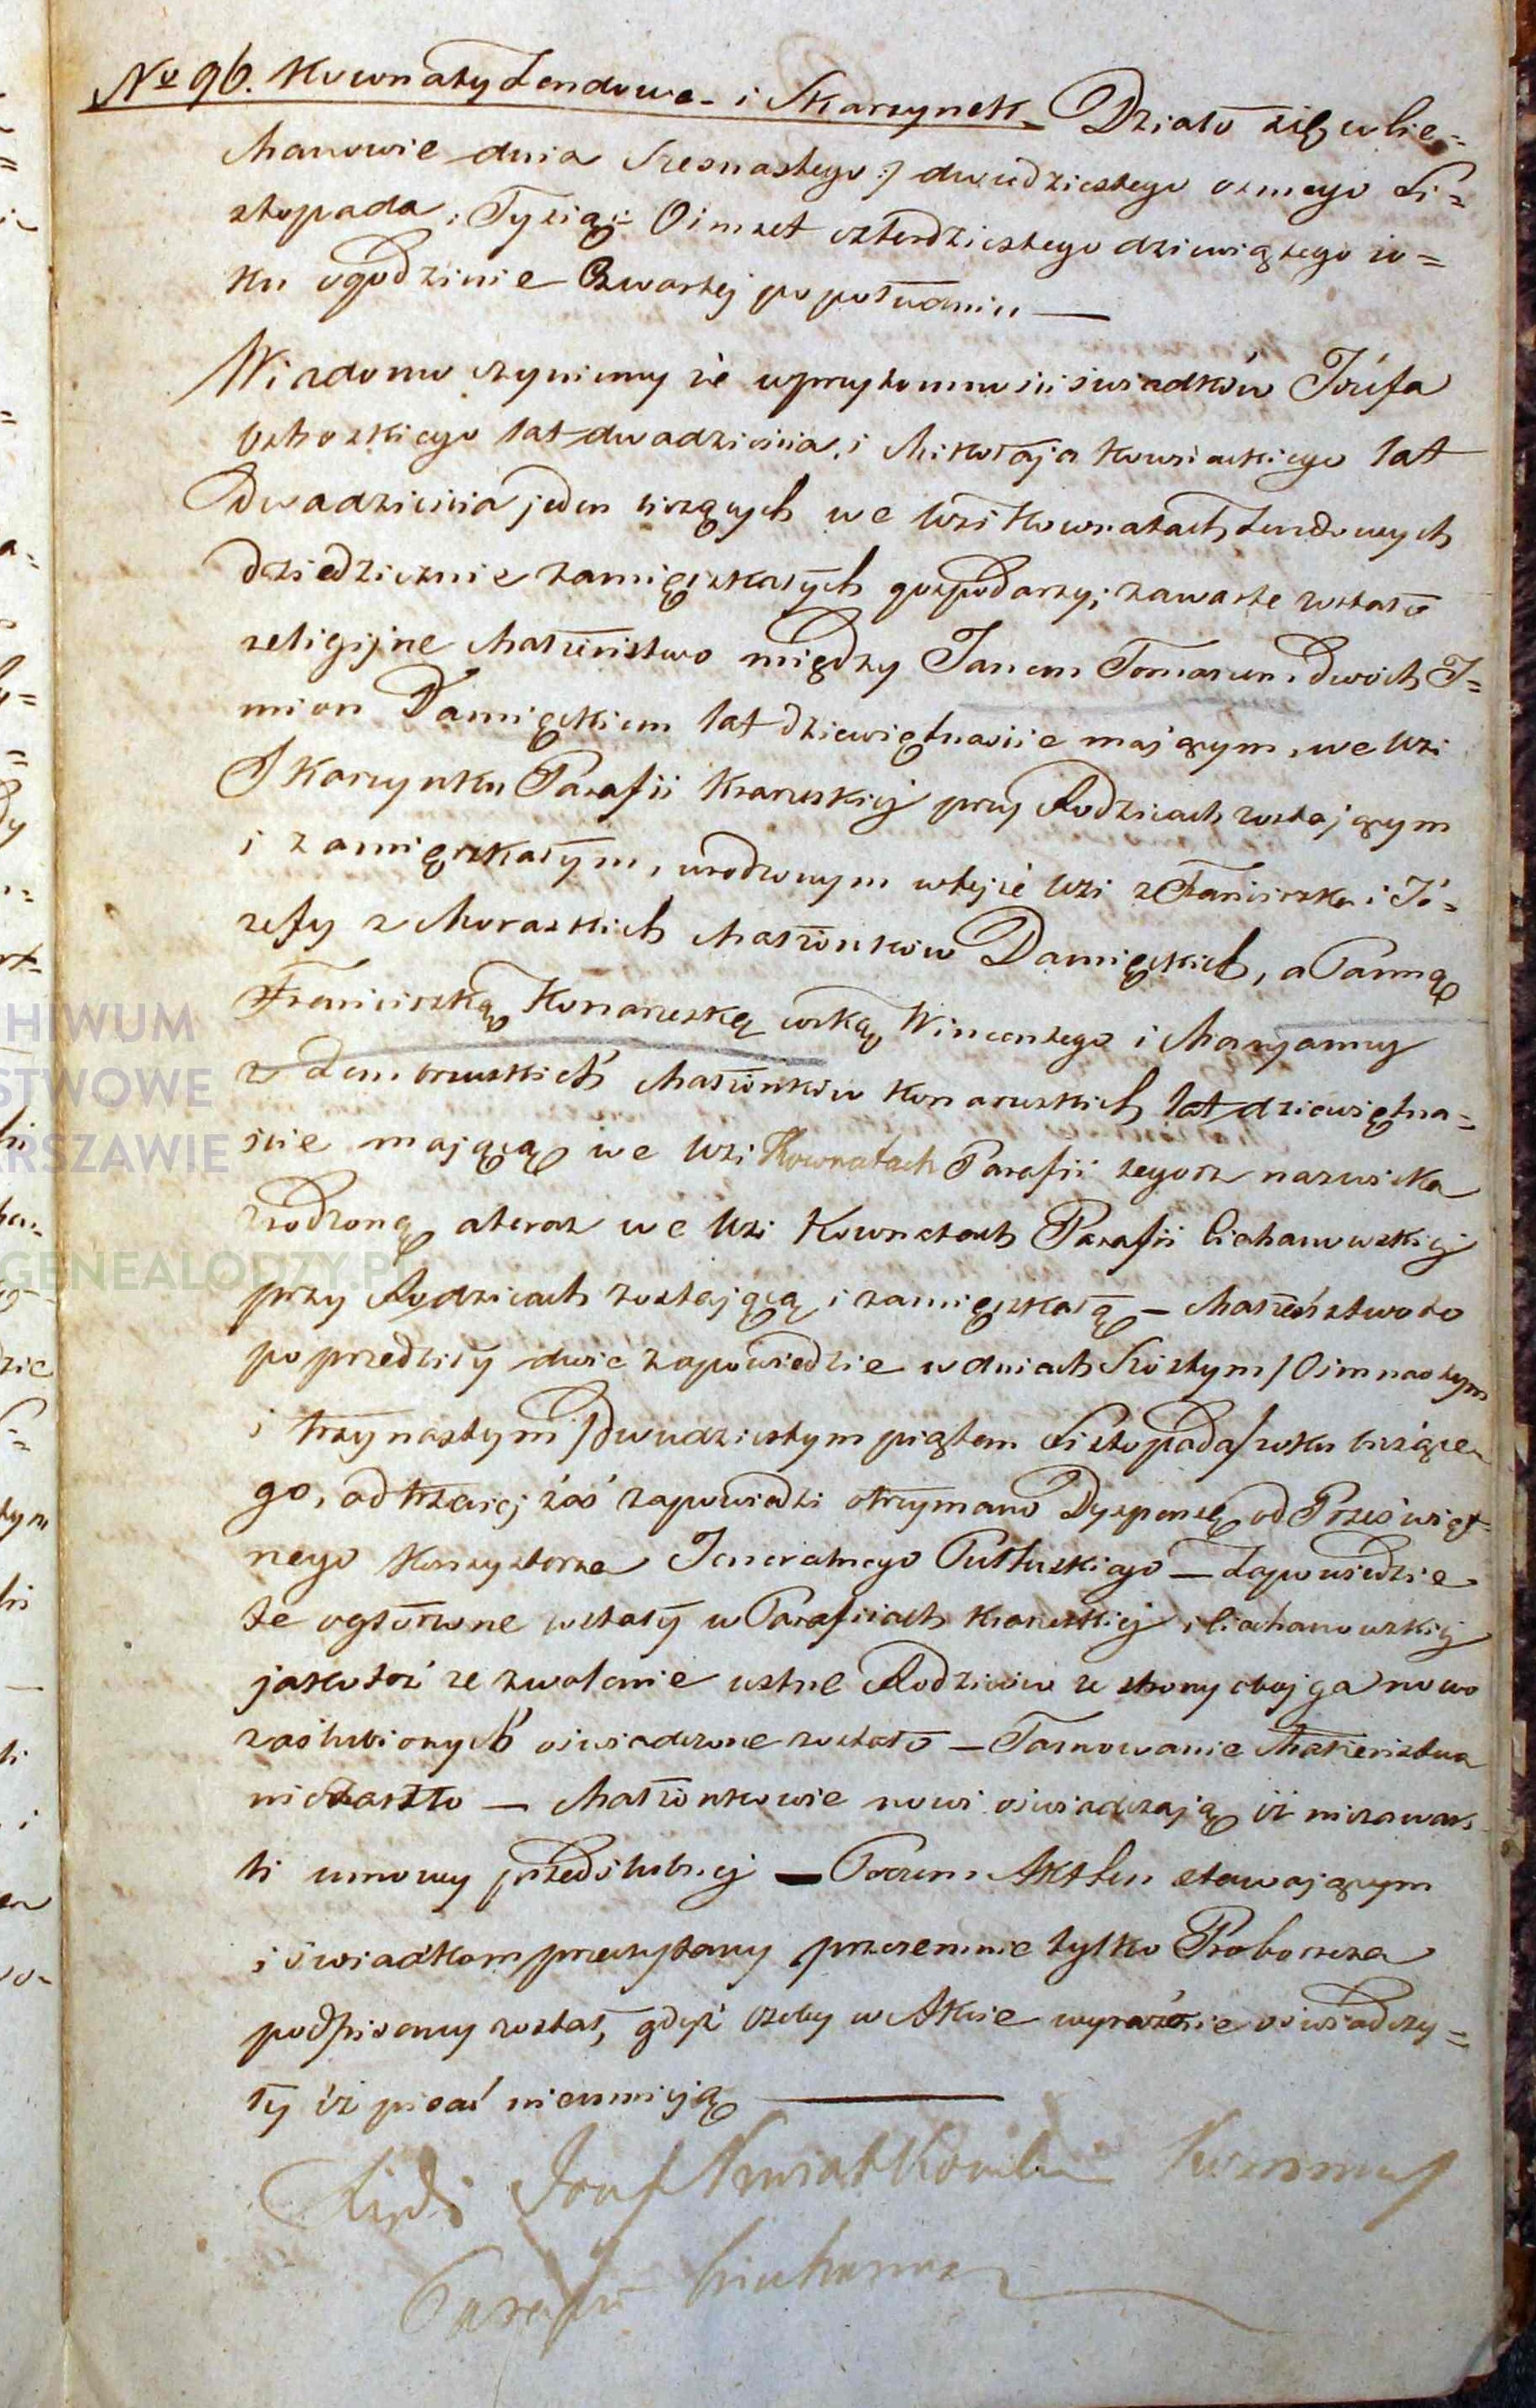 No 96. Kownaty Lendowe i Skarzynek Działo się w Cie=
chanowie dnia Szesnastego / dwudziestego osmego Li=
stopada, Tysiąc Oimset czterdziestego dziewiątego ro=
ku o godzinie Czwartej po południu —
Wiadomo czyniemy że w przytomności swiadków Józefa
lat dwadzieścia, i Mikołaja Kownackiego lat
dwadzieścia jeden liczących we Wsi Kownatach Lendowych
dziedzicznie zamięszkałych gospodarzy; zawarte zostało
religijne Małżeństwo między Janem Tomaszem dwóch I=
mion Damięckiem lat dziewiętnaście mającym, we Wsi
Skarzynku Parafii przy Rodzicach zostającym
i zamięszkałym, urodzonym w tejże Wsi z Franciszka i Jó=
zefy z Małżonków Damięckich, a Panną
Franciszką Konarzeską córką Wincentego i Maryanny
z Małżonków Konarzeskich lat dziewiętna=
ście mającą we Wsi Kownatach Parafii tegoż nazwiska
zrodzoną a teraz we Wsi Kownatach Parafii Ciechanowskiej
przy Rodzicach zostającą i zamięszkałą — Małżeństwo to
poprzedziły dwie zapowiedzie w dniach Szóstym / Osmnastym
i trzynastym / dwudziestym piątem Listopada / roku bieżące
go, od trzeciej zaś zapowiedzi otrzymano Dyspensę od Prześwięt=
nego Konsystorza Jeneralnego Pułtuskiego — Zapowiedzie
te ogłoszone zostały w Parafiach i Ciechanowskiej
jakotóż ze zwolenie ustne Rodziców ze strony obojga nowo
zaślubionych oświadczone zostało — Tamowanie Małżeństwa
nie zaszło — Małżonkowie nowi oświadczają iż nie zawar
li umowy przedślubnej — Poczem Akt ten stawającym
i świadkom przeczytany przezemnie tylko Proboszcza
podpisany został, gdyż Osoby w Akcie wyraźnie oświadczy=
ły iż pisać nieumieją —
Xiądz Józef Kwiatkowski
Parafii
HIWUM
STWOWE
RSZAWIE
GENEALODZY.P